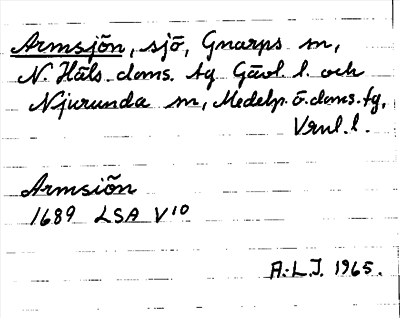 Armsjön, sjö, Gnarps sn,
N. Häls. doms. tg Gävl. l. och
Njurunda sn, Medelp. ö. doms. tg,
Vrnl. l.
Armsiön
1689 LSA V10
A.L.J. 1965.